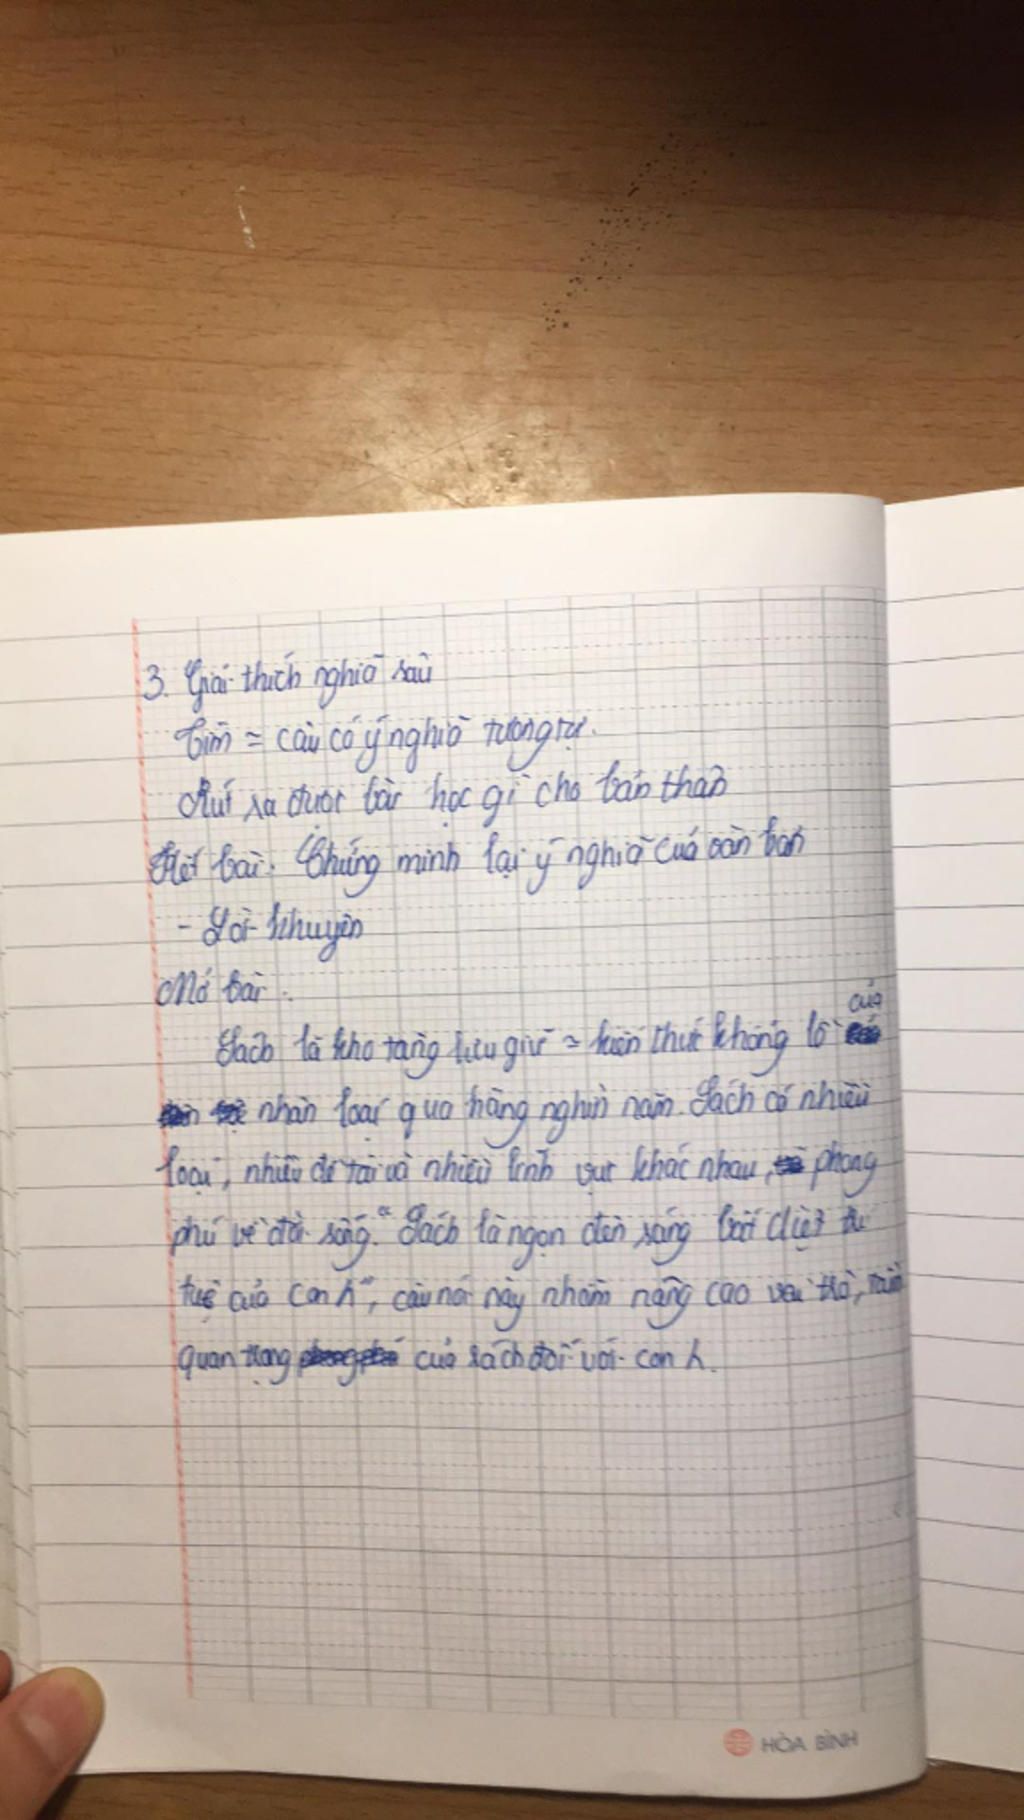 3. Giải thích nghĩa sâu
Tìm = câu có ý nghĩa tương tự.
Rút ra được bài học gì cho bản thân
Kết bài: Chứng minh lại ý nghĩa của văn bản
- Lời khuyên
Mở bài.
Sách là kho tàng lưu giữ = kiến thức khổng lồ của
nhân loại qua hàng nghìn năm. Sách có nhiều
loại, nhiều đề tài và nhiều lĩnh vực khác nhau, phong
phú về đời sống. "Sách là ngọn đèn sáng bất diệt
tuệ của con h", câu nói này nhằm nâng cao vai trò,
quan trọng của sách đối với con h.
HÒA BÌNH